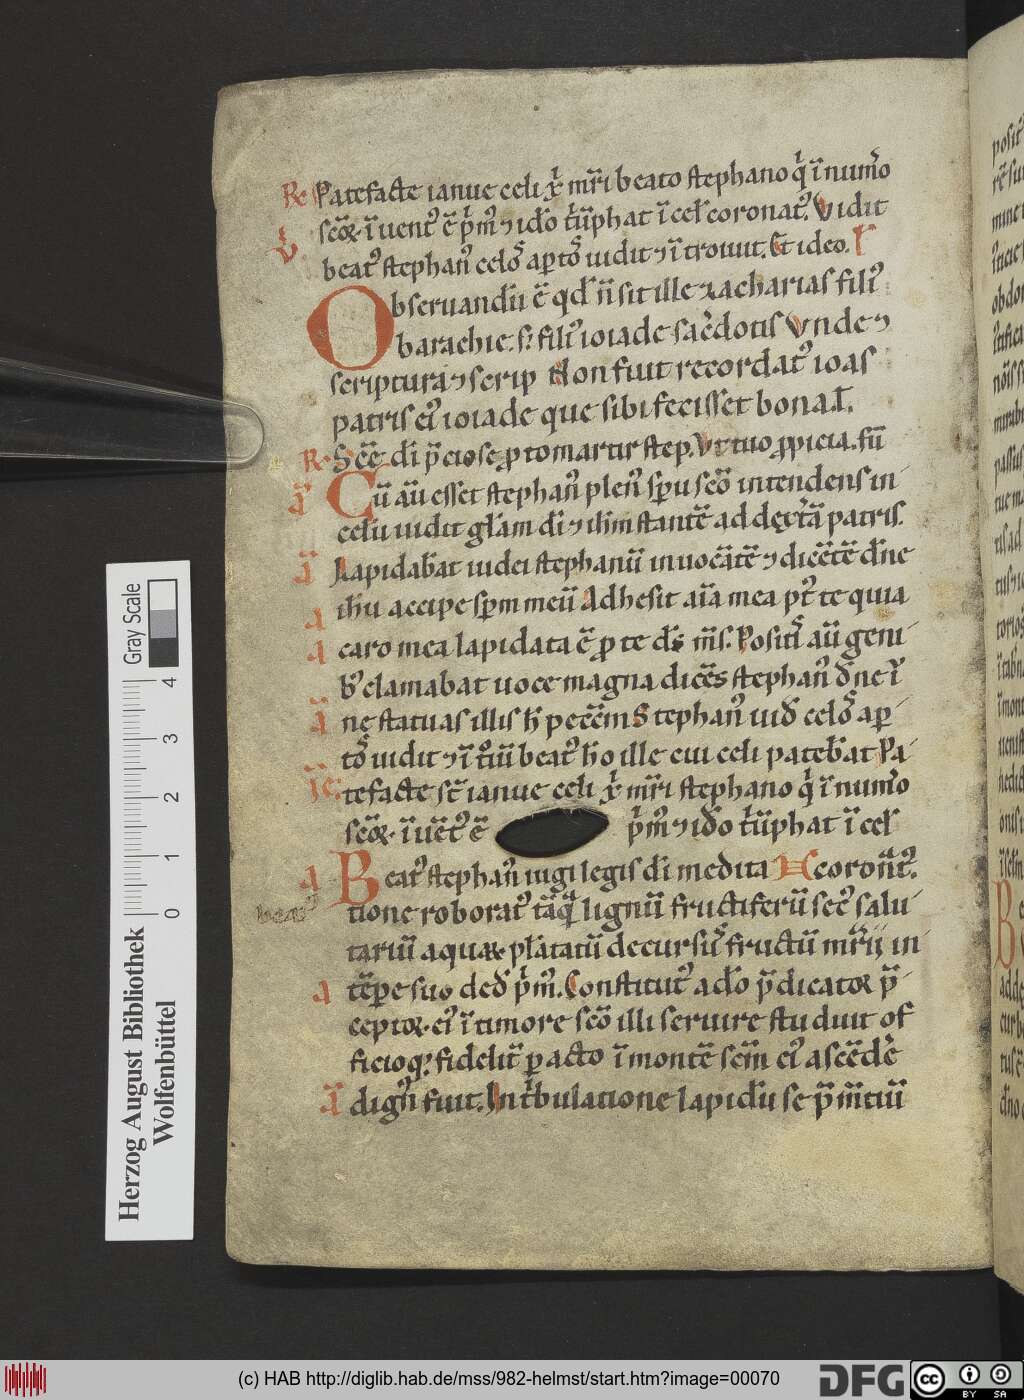 R Patefacte ianue celi x̄ mr̄i beato stephano q̇ ī num̄o
v sc̄oꝝ īuentꝰ ē p̄mꝰ ⁊ id̄o triūphat ī cel̄ coronatꝰ. Vidit
beatꝰ stephanꝰ celos̄ ap̄tos̄ uidit ⁊ ītroiuit. Et ideo. l̄
Obseruandū ē qd̄ n̄ sit ille zacharias filiꝰ
barachie. s; filiꝰ ioiade sac̄dotis Vnde ⁊
scriptura ⁊ scrip Non fuit recordatꝰ ioas
patris eiꝰ ioiade que sibi fecisset bona. l̄.
R Sc̄e di p̄ciose ꝓtomartir step. Vt tuo ꝓpicia. fū
a Cū aū esset stephanꝰ plenꝰ sp̄u sc̄o intendens in
celū uidit gl̄am di ⁊ ih̄m stantē ad dext̄ā patris.
a Lapidab̄at iudei stephanū inuocātē ⁊ dicētē dn̄e
a ih̄u accipe sp̄m meū Adhesit aīa mea pꝰt te quia
a caro mea lapidata ē ꝓ te ds̄ ms̄. Positis aū geni
bꝰ clamabat uoce magna dicēs stephanꝰ dn̄e ī
a ne statuas illis h̄ peccm̄ Stephanꝰ uid̄ celos̄ ap̄
tos̄ uidit ⁊ ītiuit beatꝰ ho ille cui celi pateb̄at Pa
tefacte st̄ ianue celi x̄ mr̄i stephano q̇ ī num̄o
sc̄oꝝ īuētꝰ ē p̄mꝰ ⁊ id̄o triūphat ī cel̄
a Beatꝰ stephanꝰ iugi legis di medita coronatꝰ.
beatꝰ
tione roboratꝰ tāq̄ lignū fructiferū secꝰ salu
tariū aquaꝝ plātatū decursus fructū mr̄ii in
a tēpe suo ded̄ p̄mꝰ. Constitutꝰ a d̄o p̄dicatoꝝ p̄
ceptoꝝ. eiꝰ ī timore sc̄o illi seruire studuit of
ficioq; fidelit̄ pacto ī montē scm̄ eiꝰ ascēde
a dignꝰ fuit. In tbulatione lapidū se p̄mētiū
Herzog August Bibliothek
Wolfenbüttel
Gray Scale
0 1 2 3 4
(c) HAB http://diglib.hab.de/mss/982-helmst/start.htm?image=00070
DFG
cc BY SA